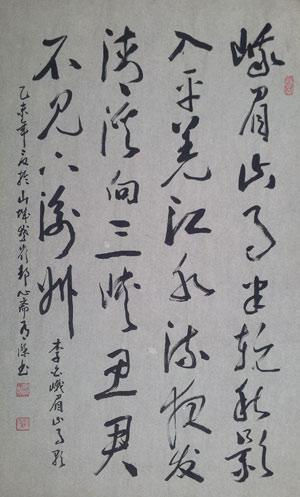 峨眉山月半轮秋影
入平羌江水流夜发
清溪向三峡思君
不见下渝州
李白峨眉山月
乙未年夏於山城 心斋